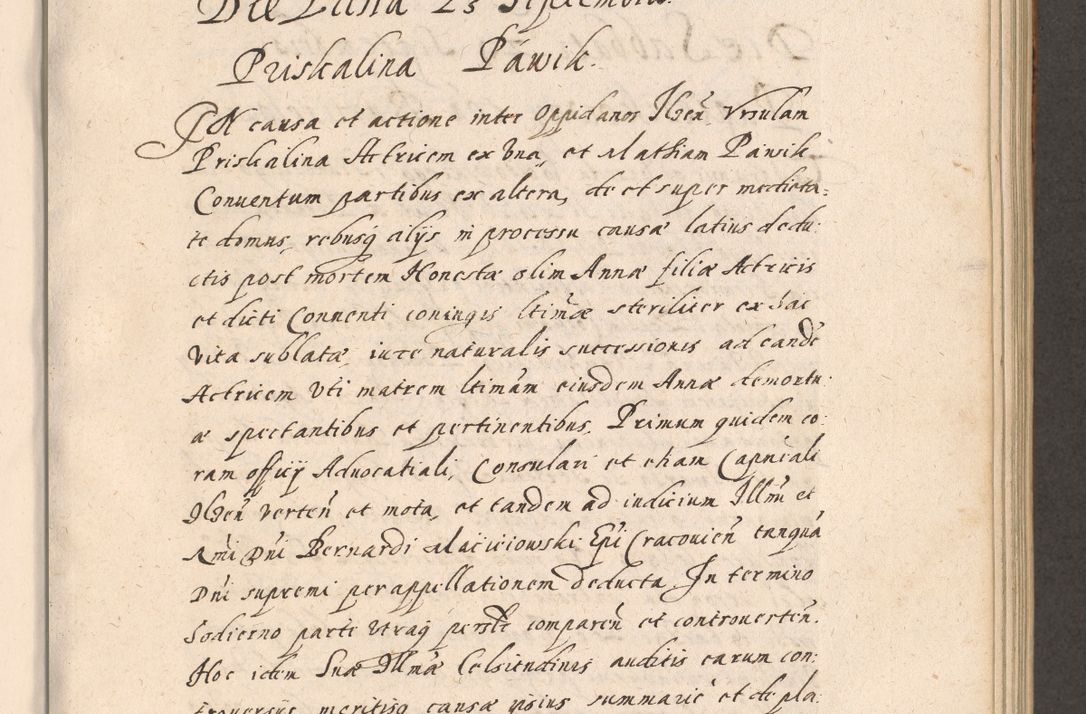 Die Luna 23 Septembris.
Priskalina Pawik.
IN causa et actione inter Oppidanos Ilzen̄ Vrsulam
Priskalina Actricem ex vna, et Mathiam Pawik
Conuentum partibus ex altera, de et super medieta=
te domus, rebusq́ alijs in processu causæ latius dedu:
ctis post mortem Honestæ olim Annæ filiæ Actricis
et dicti Conuenti coniugis ltimæ steriliter ex hac
vita sublatæ, iure naturalis successionis ad eandē
Actricem vti matrem ltimam eiusdem Annæ demortu:
æ spectantibus et pertinentibus. Primum quidem co:
ram officij Aduocatiali, Consulari et etiam Capnēali
Ilzen̄ verten̄ et mota, et tandem ad iudicium Illmi et
Rmi Dni Bernardi Macieiowski Epi Cracouien̄ tanquā
Dni supremi per appellationem deducta. In termino
hodierno parte vtraq́ persltr comparen̄ et controuerten̄.
Hoc idem Suæ Illmæ Celsitudinis auditis earum con:
trouersijs meritisq́ causæ visius summariè et de pla: